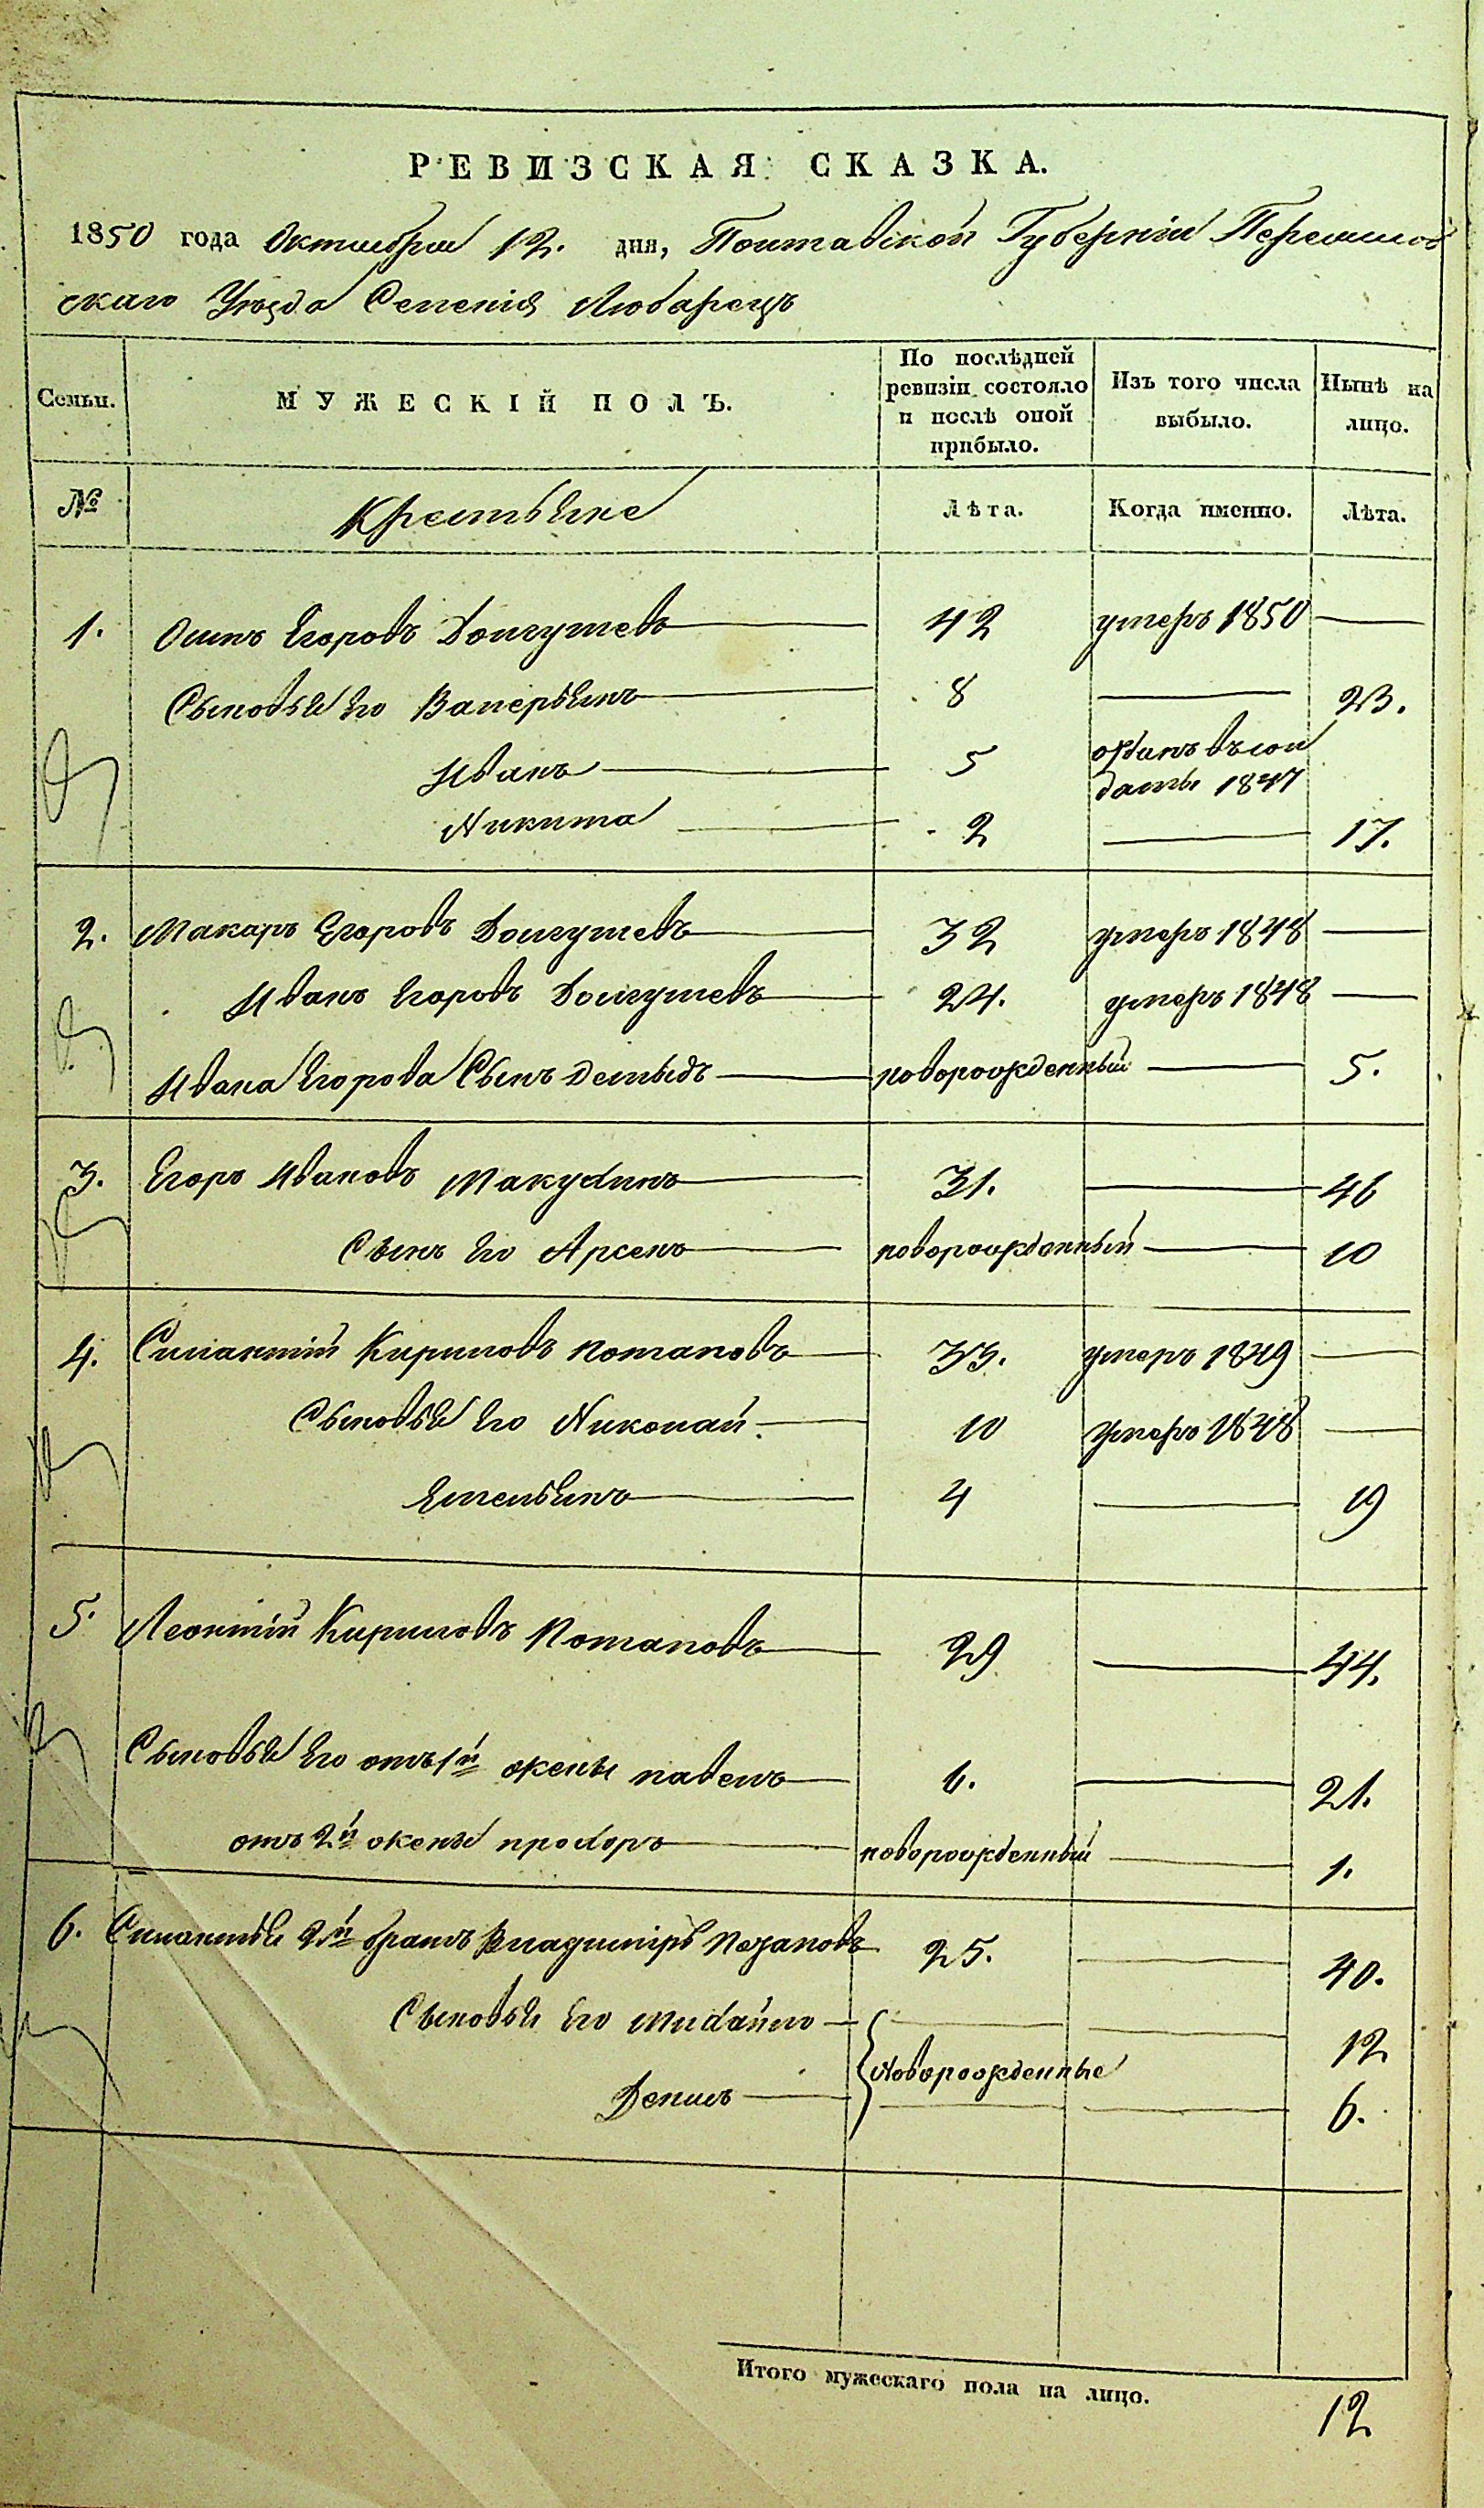 РЕВИЗСКАЯ СКАЗКА.
1850 года Октября 12. дня, Полтавской Губерніи Переяслов
скаго Уѣзда Селенія Любарецъ
Семьи. МУЖЕСКІЙ ПОЛЪ. По послѣдней ревизіи состояло и послѣ оной прибыло. Изъ того числа выбыло. Нынѣ на лицо.
№ Крестьяне Лѣта. Когда именно. Лѣта.
1. Осипъ Егоровъ Долгушевъ 42 умеръ 1850
Сыновья Его Валерьянъ 8 23.
Иванъ 5 отданъ въ сол
даты 1847
Никита 2 17.
2. Макаръ Егоровъ Долгушевъ 32 умеръ 1848
Иванъ Егоровъ Долгушевъ 24. умеръ 1848
Ивана Егорова Сынъ Демыдъ новорожденный 5.
3. Егоръ Ивановъ Макухинъ 31. 46
Сынъ Его Арсенъ новорожденный 10
4. Силантій Кириловъ Потаповъ 33. умеръ 1849
Сыновья Его Николай. 10 умеръ 1848
Емельянъ 4 19
5. Леонтій Кириловъ Потаповъ 29 44.
Сыновья Его отъ 1й жены павелъ 6. 21.
отъ 2й жены прохоръ новорожденный 1.
6. Силантья 2й братъ Владиміръ Потаповъ 25. 40.
Сыновья Его Михайло 12
Новорожденные
Денисъ 6.
Итого мужескаго пола на лицо. 12